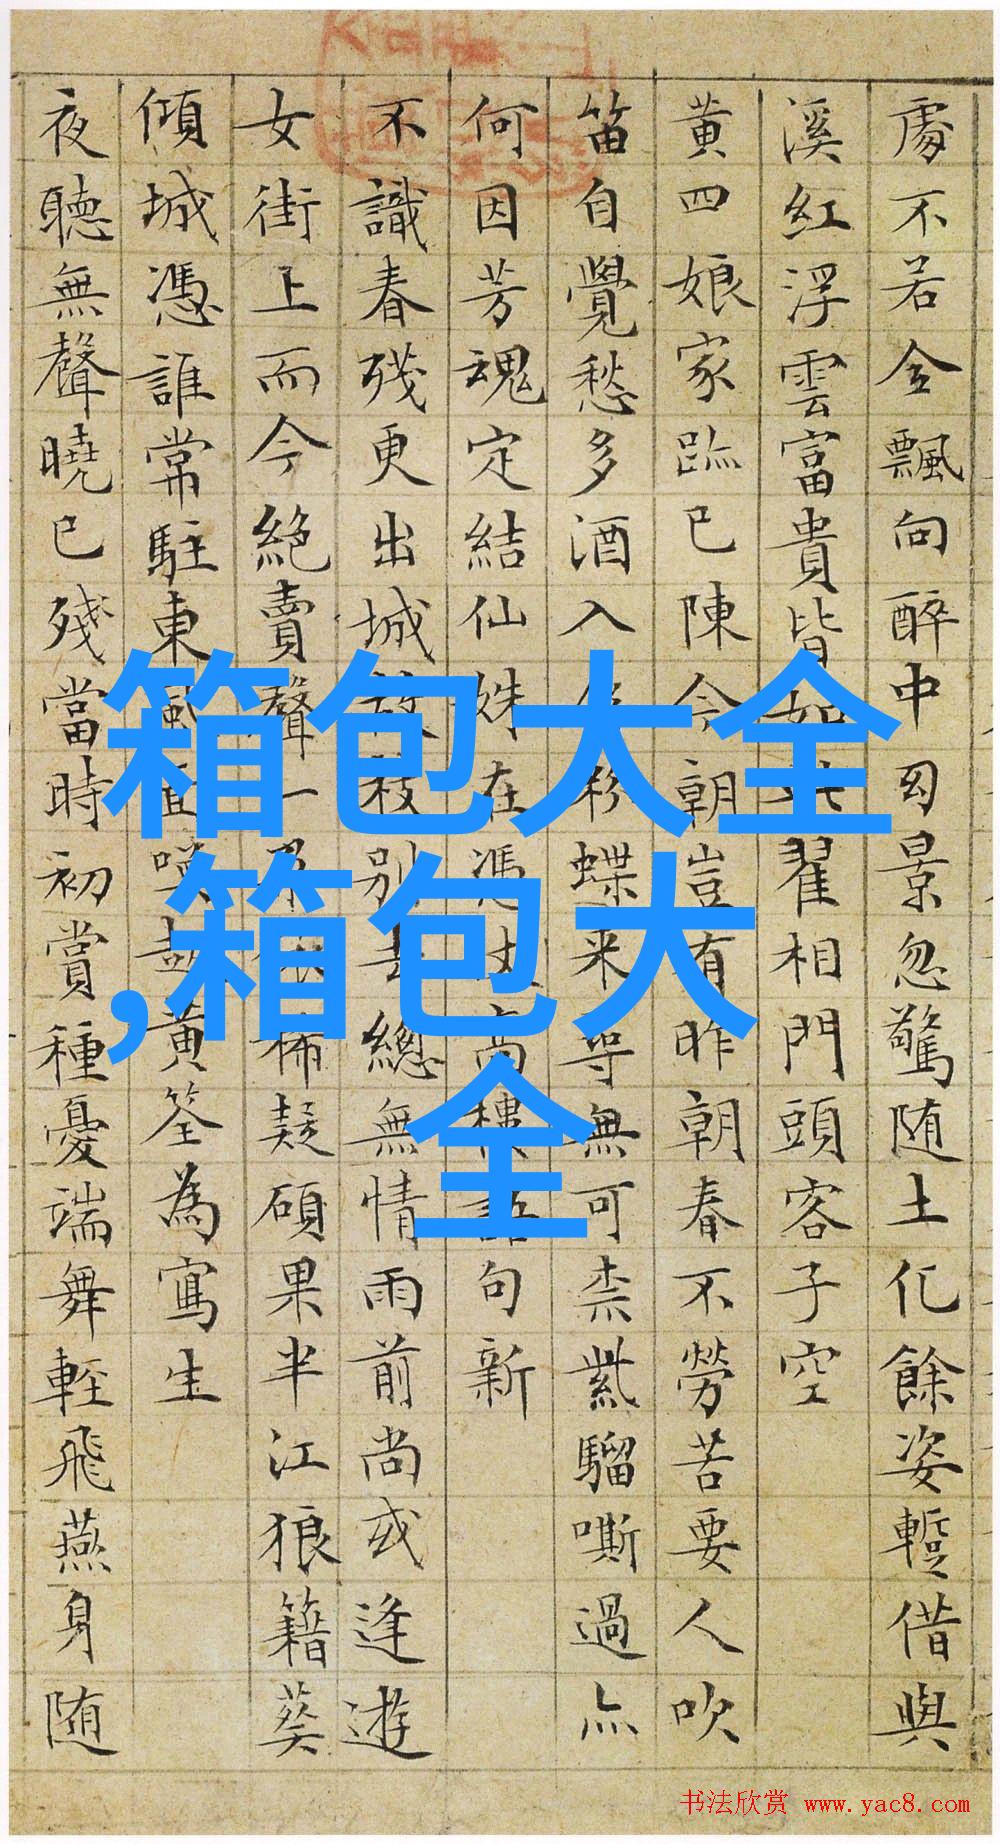 處不若令飄向醉中景忽驚随土化餘姿蹔借與
溪紅浮雲富貴皆如此翟相門頭客子空
黄四娘家跡已陳今朝豈有昨朝春不勞苦要人吹
笛自覺愁多酒入粉蝶来尋無可柰紫騮嘶過亦
何因芳魂定結仙姝在憑仗高樓語句新
不識春殘更出城故枝别去總無情雨前尚或逢遊
女街上而今絶賣聲一依稀疑碩果半江狼籍葬
傾城憑誰常駐東風面唤起黄筌為寫生
夜聽無聲曉已殘當時初賞種憂端舞輕飛燕身随
箱包大全
,箱包大
全
书法欣赏 www.yac8.com